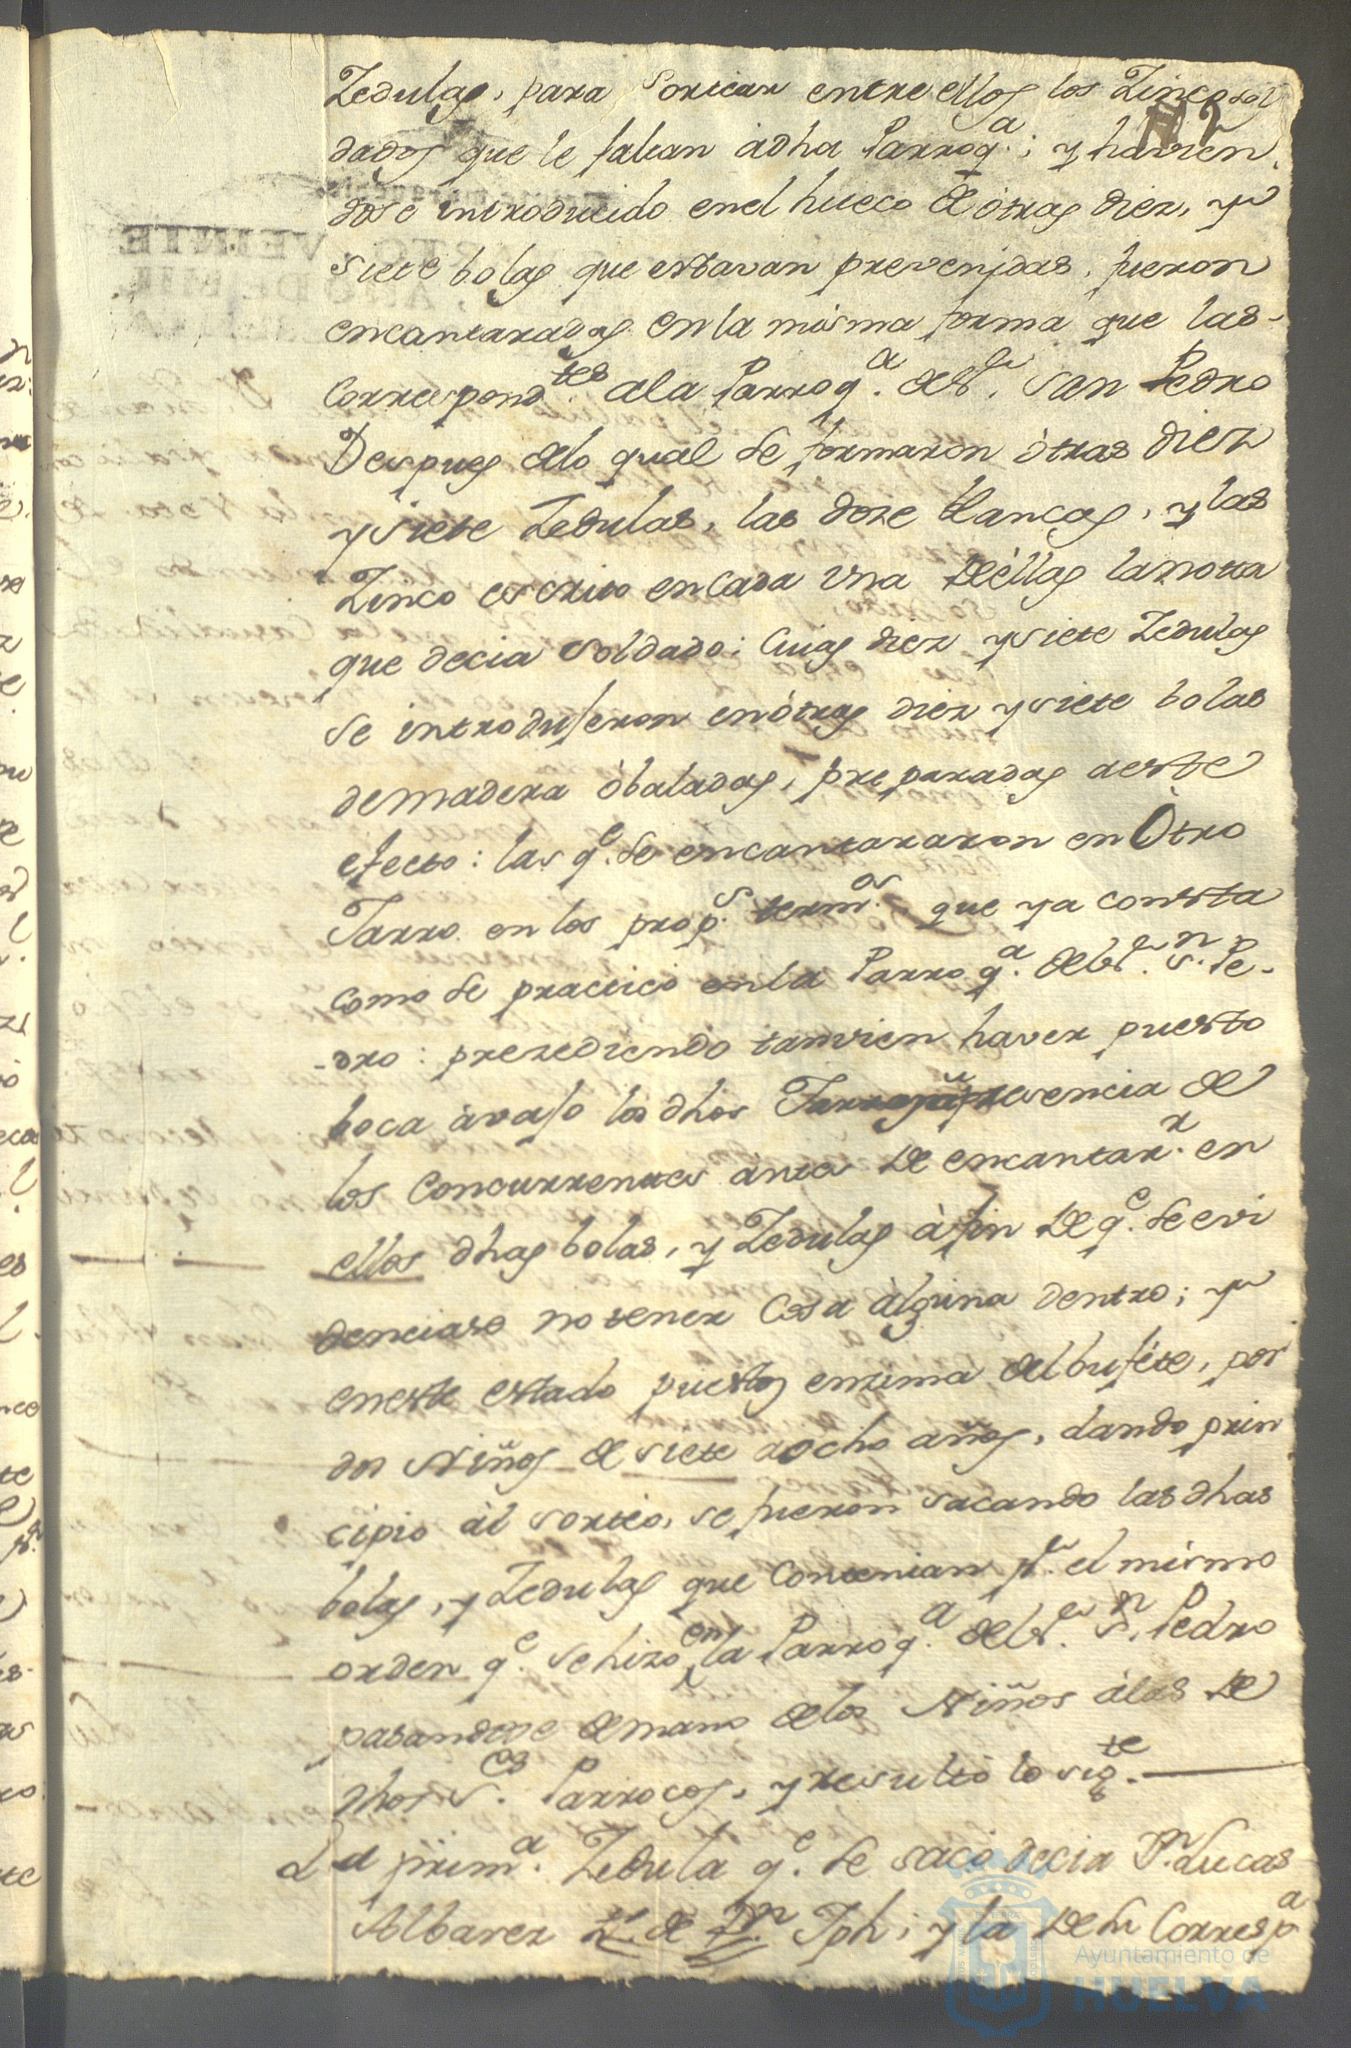 Zedulas, para Sortear entre ellos los Zinco sol
dados que le faltan à dha Parroq.ª; y havien
dose introducido en el hueco de òtras diez, y
siete bolas que estavan prevenidas, fueron
encantaradas en la misma forma que las
Correspond.tes a la Parroq.ª del S.r San Pedro
Despues de lo qual se formaron òtras diez
y siete Zedulas, las doze blancas, y las
Zinco escrito en cada una de èllas la notta
que decia Soldado; Cuias diez y siete Zedulas
se introdujeron en òtras diez y siete bolas
de madera òbaladas, preparadas a este
efecto: las q.e se encantararon en Òtro
Jarro en los prop.s term.os que ya consta
como se practicò en la Parroq.ª del S.r S.n Pe-
-dro: prezediendo tamvien haver puesto
boca àvajo los dhos Jarros presencia de
los Concurrentes àntes de encantar.r en
ellos dhas bolas, y Zedulas à fin de q.e se evi
denciase no tener Cosa àlguna dentro; y
en este estado puestos enzima del bufete, por
dos Niños de siete a ocho años, dando prin
cipio àl sorteo, se fueron sacando las dhas
bolas, y Zedulas que Contenian p.r el mismo
orden q.e se hizo en la Parroq.ª del S.r S.n Pedro
pasandose de mano de los Niños àlas de
dhos S.es Parrocos, y resultò lo sig.te
La prim.ª Zedula q.e se sacò decia D.n Lucas
Albarez h.º de D.n Jph; y la de su Corresp.ª
Ayuntamiento de
HUELVA